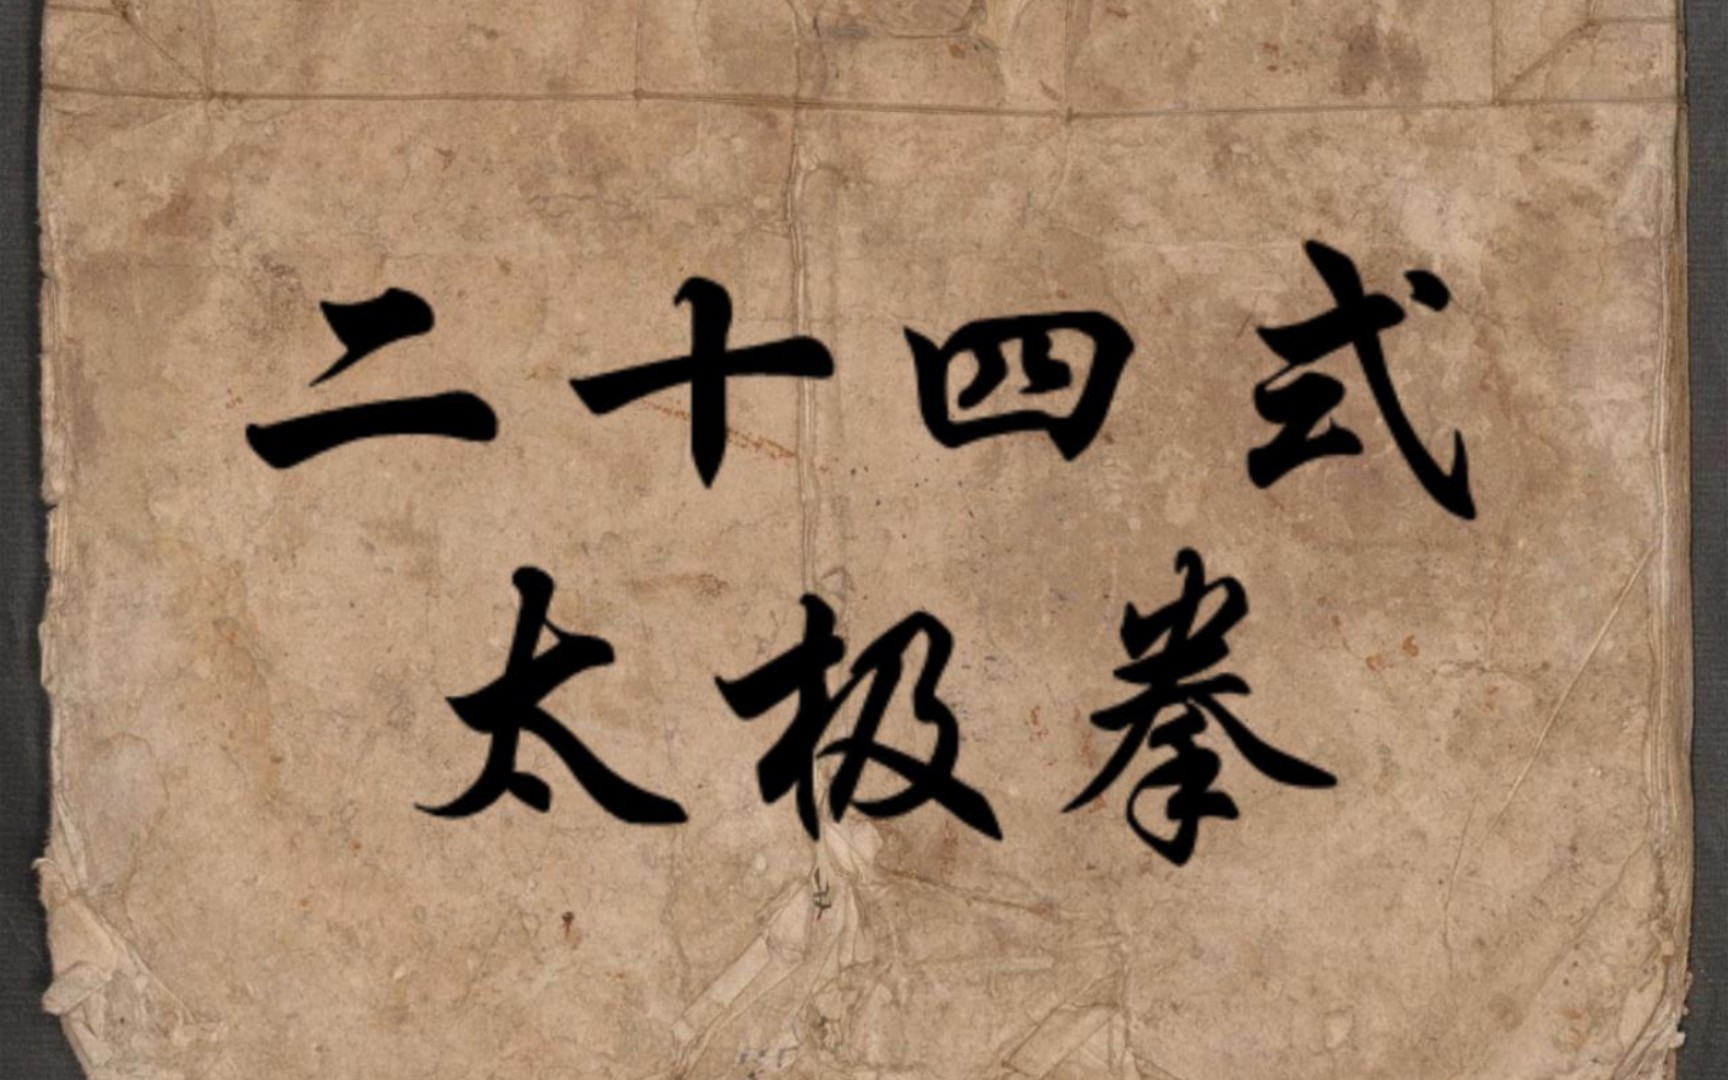 二十四式
太极拳